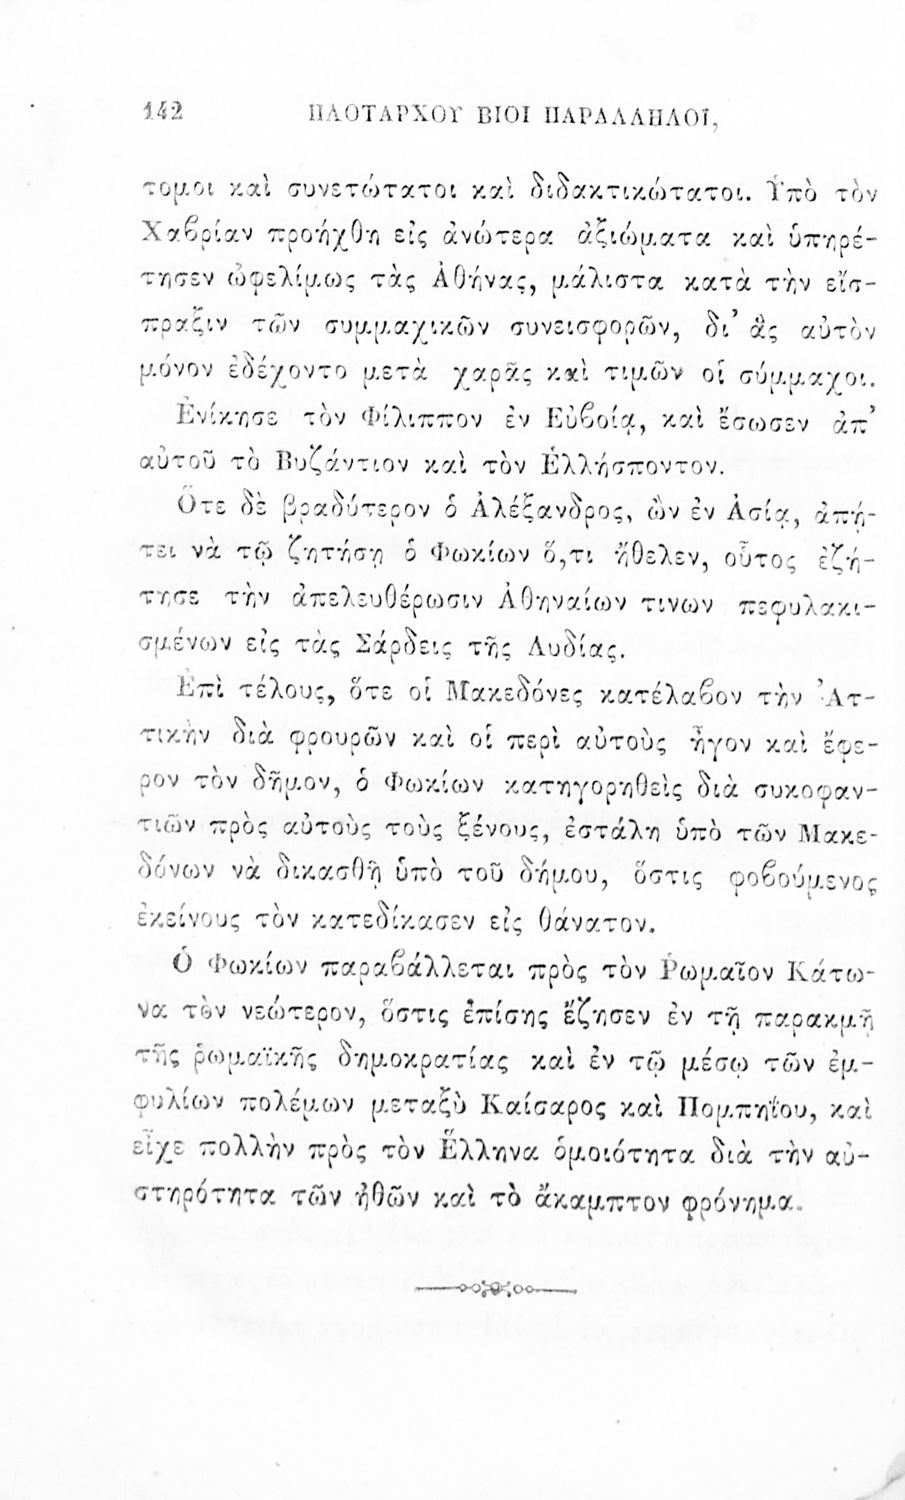 142 ΠΛΟΤΑΡΧΟΥ ΒΙΟΙ ΠΑΡΑΛΛΗΛΟΙ,
τομοι καὶ συνετώτατοι καὶ διδακτικώτατοι. Ὑπὸ τὸν
Χαβρίαν προήχθη εἰς ἀνώτερα ἀξιώματα καὶ ὑπηρέ-
τησεν ὠφελίμως τὰς Ἀθήνας, μάλιστα κατὰ τὴν εἴσ-
πραξιν τῶν συμμαχικῶν συνεισφορῶν, δι’ ἃς αὐτὸν
μόνον ἐδέχοντο μετὰ χαρᾶς καὶ τιμῶν οἱ σύμμαχοι.
Ἐνίκησε τὸν Φίλιππον ἐν Εὐβοίᾳ, καὶ ἔσωσεν ἀπ’
αὐτοῦ τὸ Βυζάντιον καὶ τὸν Ἑλλήσποντον.
Ὅτε δὲ βραδύτερον ὁ Ἀλέξανδρος, ὢν ἐν Ἀσίᾳ, ἀπή-
τει νὰ τῷ ζητήσῃ ὁ Φωκίων ὅ,τι ἤθελεν, οὗτος ἐζή-
τησε τὴν ἀπελευθέρωσιν Ἀθηναίων τινων πεφυλακι-
σμένων εἰς τὰς Σάρδεις τῆς Λυδίας.
Ἐπὶ τέλους, ὅτε οἱ Μακεδόνες κατέλαβον τὴν Ἀτ-
τικὴν διὰ φρουρῶν καὶ οἱ περὶ αὐτοὺς ἦγον καὶ ἔφε-
ρον τὸν δῆμον, ὁ Φωκίων κατηγορηθεὶς διὰ συκοφαν-
τιῶν πρὸς αὐτοὺς τοὺς ξένους, ἐστάλη ὑπὸ τῶν Μακε-
δόνων νὰ δικασθῇ ὑπὸ τοῦ δήμου, ὅστις φοβούμενος
ἐκείνους τὸν κατεδίκασεν εἰς θάνατον.
Ὁ Φωκίων παραβάλλεται πρὸς τὸν Ῥωμαῖον Κάτω-
να τὸν νεώτερον, ὅστις ἐπίσης ἔζησεν ἐν τῇ παρακμῇ
τῆς ῥωμαϊκῆς δημοκρατίας καὶ ἐν τῷ μέσῳ τῶν ἐμ-
φυλίων πολέμων μεταξὺ Καίσαρος καὶ Πομπηΐου, καὶ
εἶχε πολλὴν πρὸς τὸν Ἕλληνα ὁμοιότητα διὰ τὴν αὐ-
στηρότητα τῶν ἠθῶν καὶ τὸ ἄκαμπτον φρόνημα.